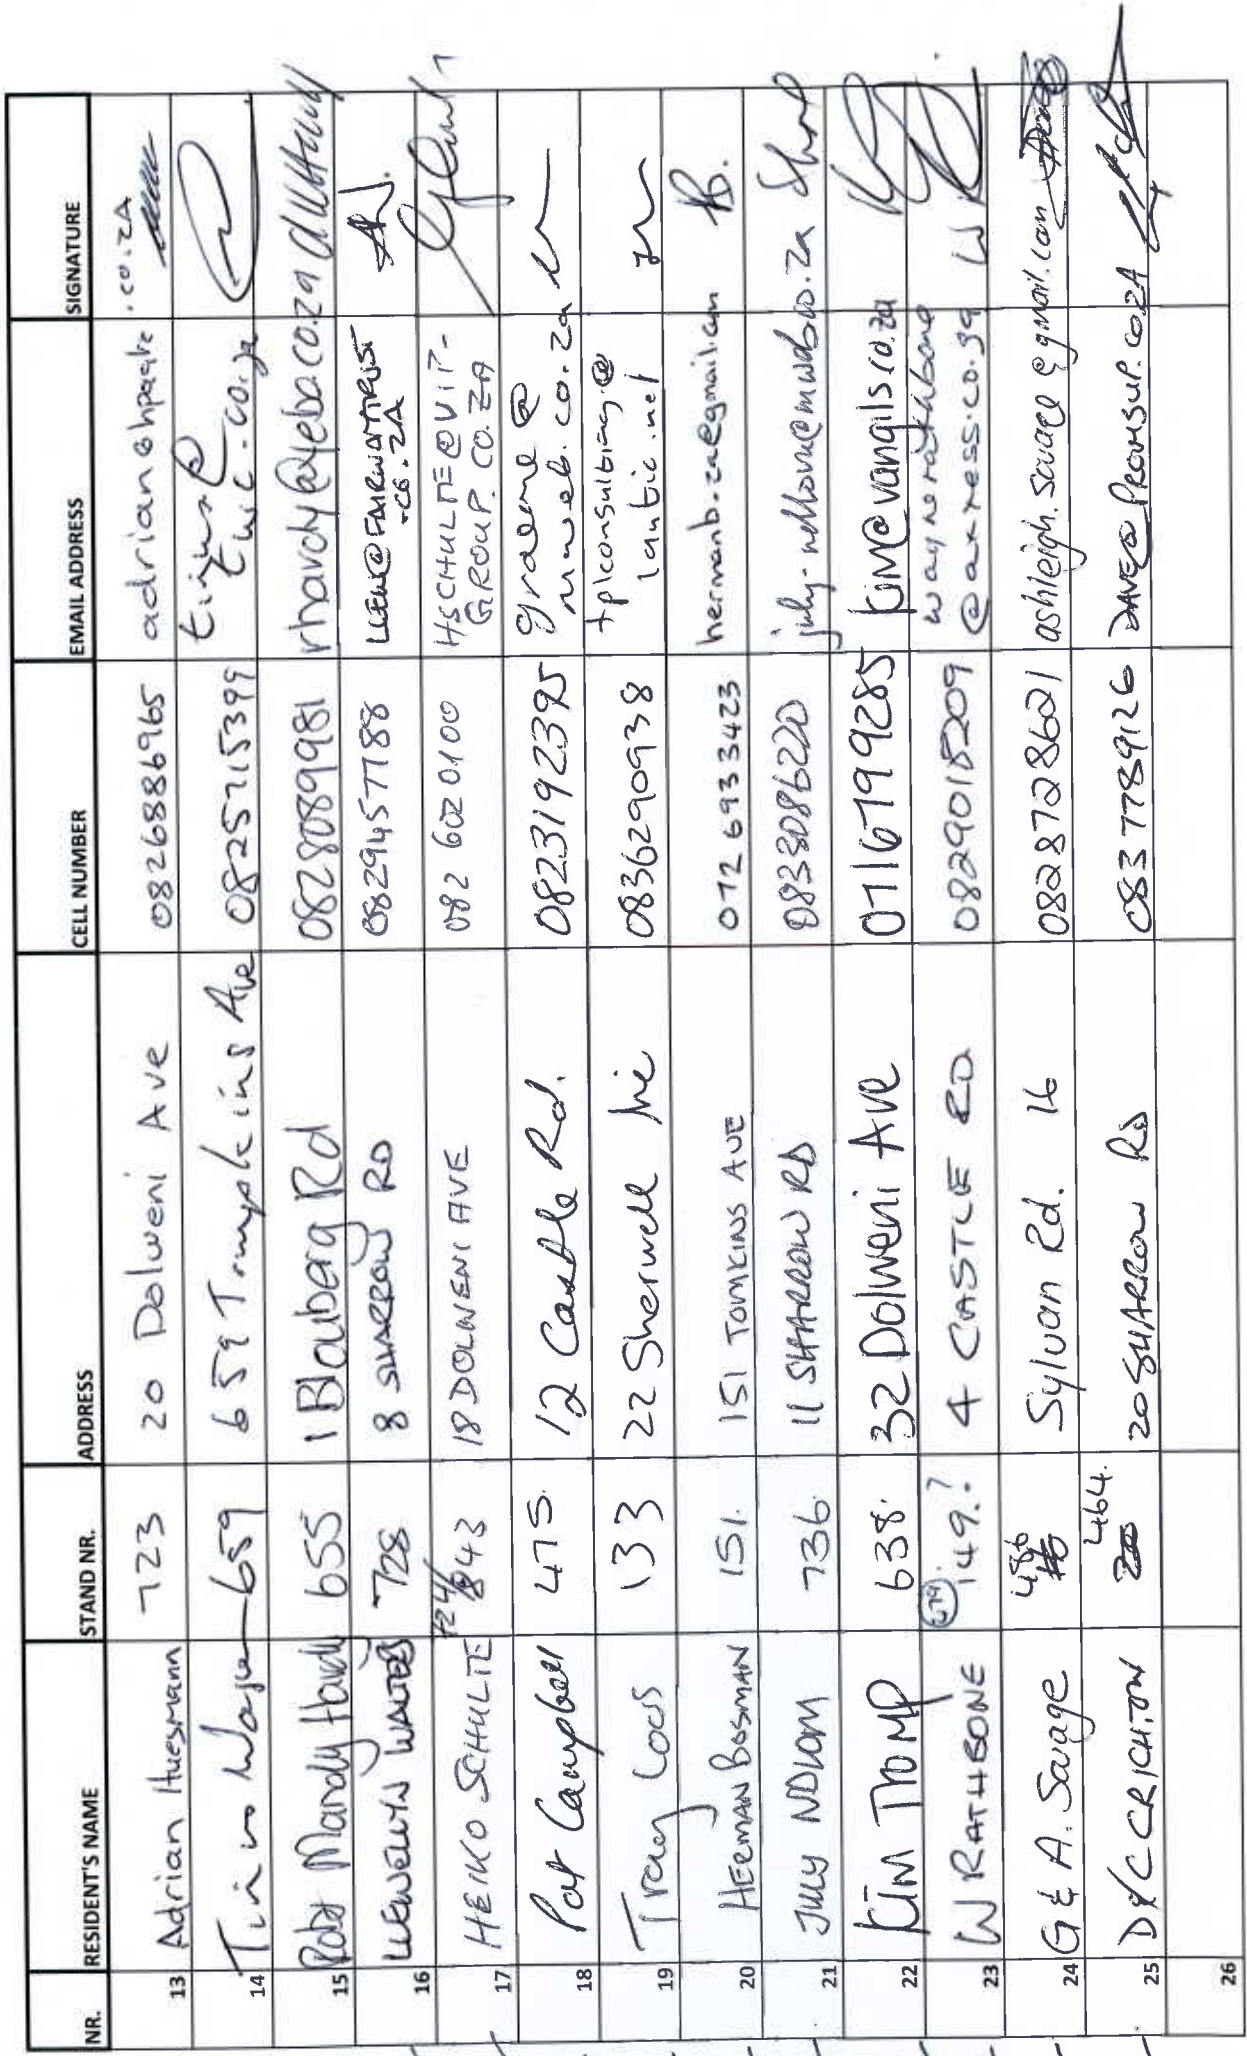 NR. RESIDENT'S NAME STAND NR. ADDRESS CELL NUMBER EMAIL ADDRESS SIGNATURE
13 Adrian Huesmann 723 20 Dolweni Ave 0826886965 adrian@hpasite .co.ZA
14 659 659 Tompkins Ave 0825715399
15 Mandy Hardy 655 1 Blouberg Rd 0828089981 rhardy@yeba.co.za
16 LLEWELLYN WALTERS 728 8 SHARROW RD 0829457788
17 HEIKO SCHULTE 724/ 843 18 DOLWENI AVE 082 602 0100 HSCHULTE@VIT-
GROUP.CO.ZA
18 Pat Campbell 475 12 Castle Rd. 0823192395 graeme@
mweb.co.za
19 Tracy 133 22 Sherwell 0836290938 tplconsulting@
lantic.net
20 HERMAN BOSMAN 151. 151 TOMKINS AVE 072 693 3423 hermanb.za@gmail.com
21 JULY 736. 11 SHARROW RD 0833086220
22 KIM TROMP 638. 32 Dolweni Ave 0716799285 kim@vangils.co.za
23 W RATHBONE 149.? 4 CASTLE RD 0829018209 waynerathbone
@axxess.co.za
24 G & A. Savage 486 Sylvan Rd. 16 0828728621 ashleigh.savage@gmail.com
25 D & C CRICHTON 464. 20 SHARROW RD 0837789126
26